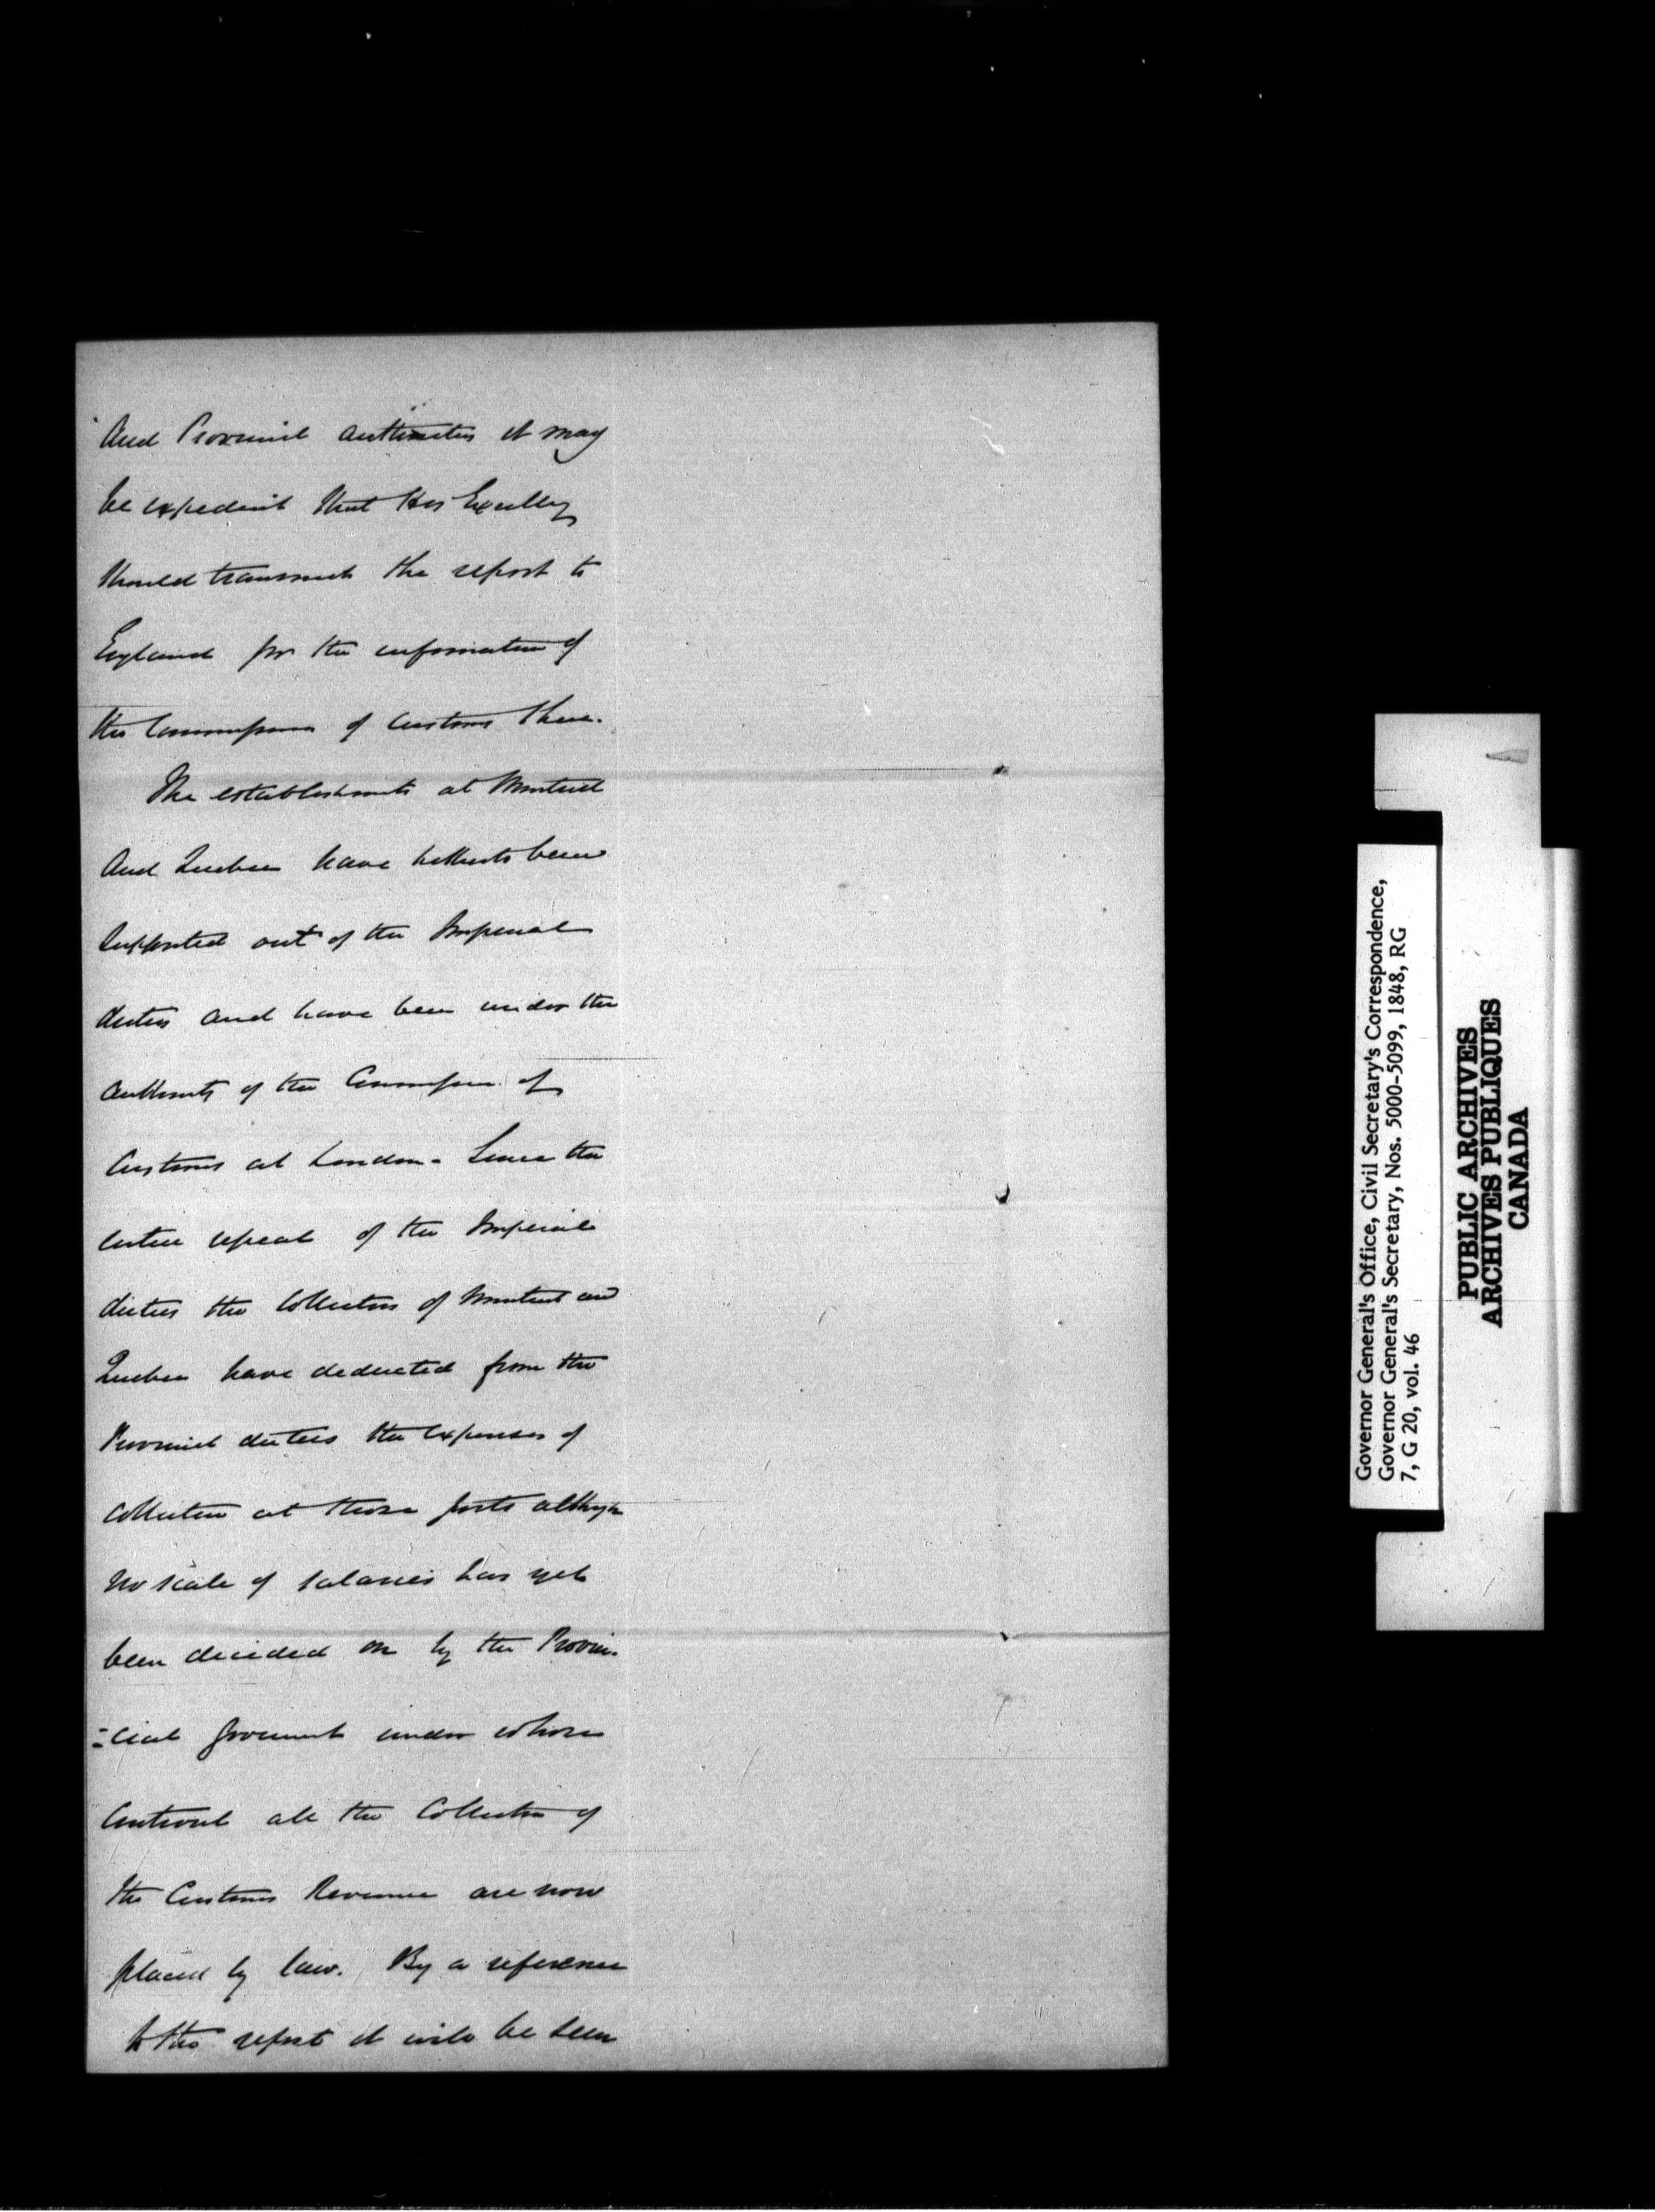 And Provincial authorities it may
be expedient that His Excellency
should transmit the report to
England for the information of
the Commissioners of Customs there.
The establishments at Montreal
And Quebec have hitherto been
supported out of the Imperial
duties and have been under the
authority of the Commissrs. of
Customs at London - Since the
entire repeal of the Imperial
duties the Collectors of Montreal and
Quebec have deducted from the
Provincial duties the expenses of
collection at those ports although
no scale of salaries has yet
been decided on by the Provin-
=cial Government under whose
Controul all the Collectors of
the Customs Revenue are now
placed by law. By a reference
to the report it will be seen
Governor General's Office, Civil Secretary's Correspondence,
Governor General's Secretary, Nos. 5000-5099, 1848, RG
7, G 20, vol. 46
PUBLIC ARCHIVES
ARCHIVES PUBLIQUES
CANADA